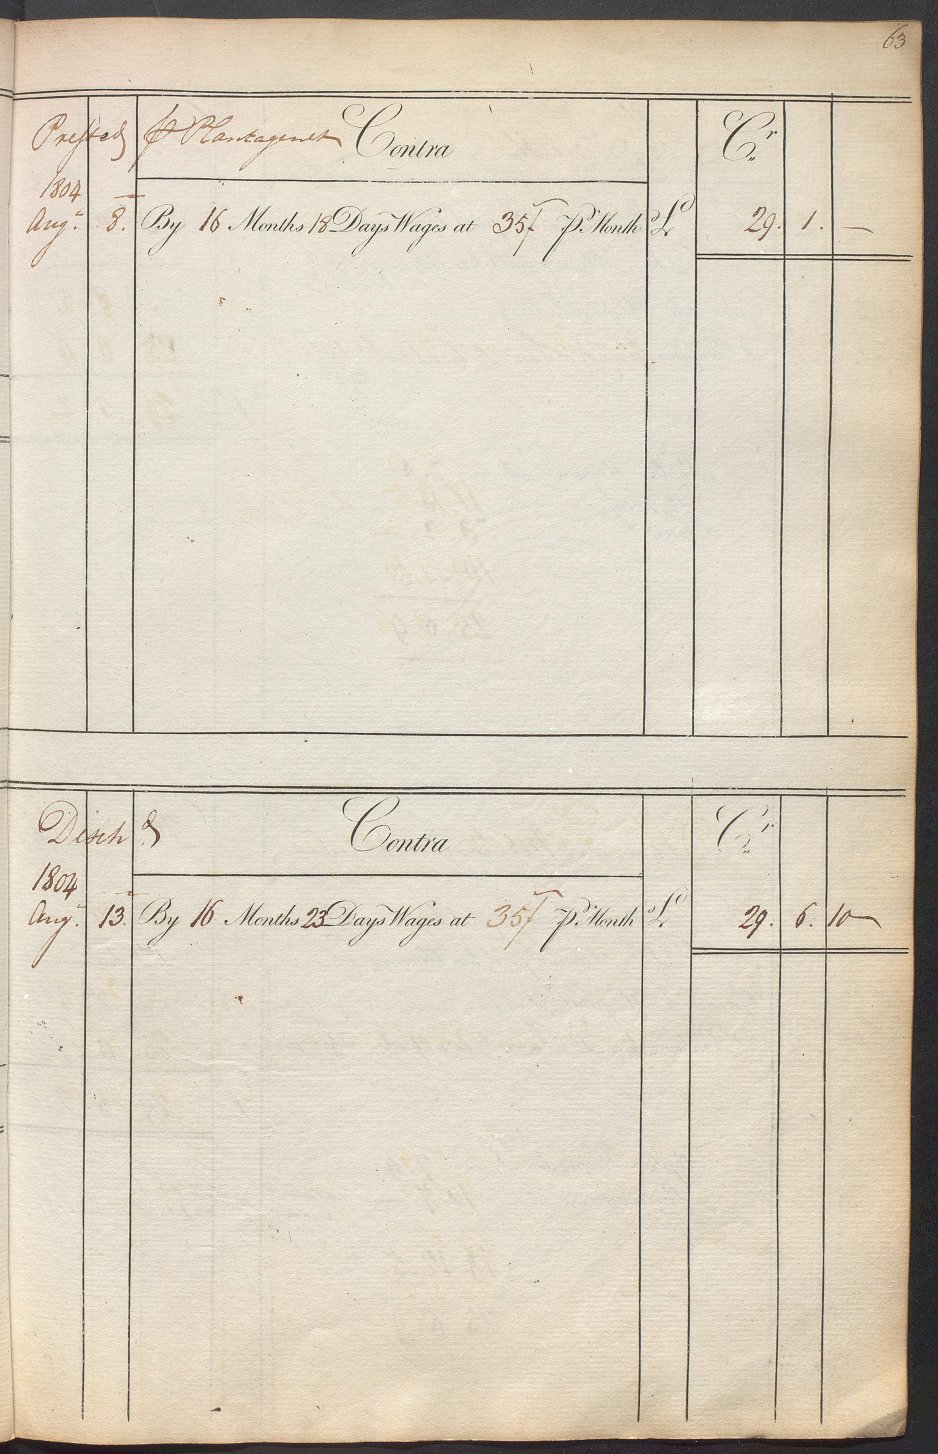 63
Prested p Plantagenet Contra Cr
1804
Augt 8. By 16 Months 18 Days Wages at 35/ p. Month £ 29. 1. —
Disch d Contra Cr
1804
Augt 13. By 16 Months 23 Days Wages at 35/ p. Month £ 29. 6. 10